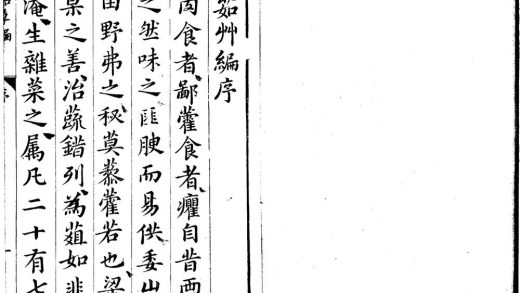 茹艸編序
肉食者鄙藿食者癯自昔
之然味之匪腴而易供委山
田野弗之秘莫藜藿若也梁
杲之善治蔬錯列為葅如韭
淹生雜菜之属凡二十有七
序